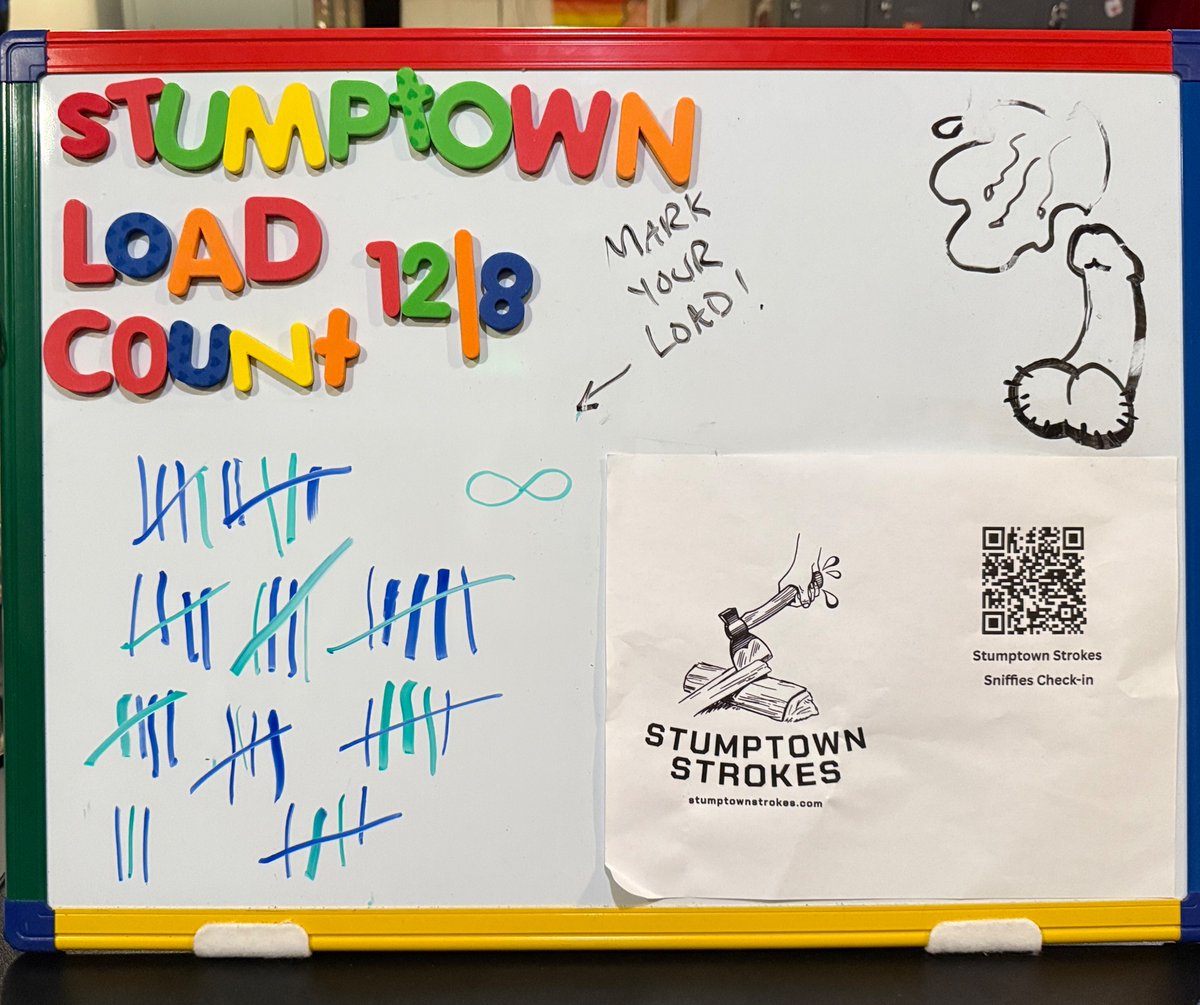 STUMPtOWN
LOAD
COUNt
12|8
MARK
YOUR
LOAD!
∞
Stumptown Strokes
Sniffies Check-in
STUMPTOWN
STROKES
stumptownstrokes.com